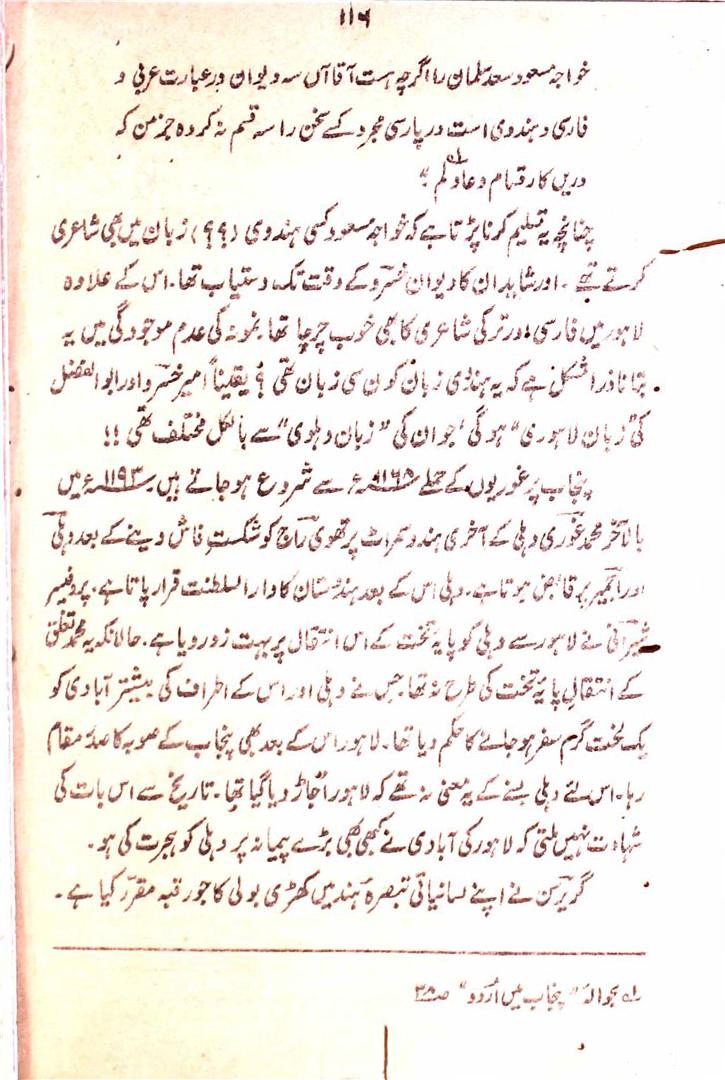 ۱۱۶
خواجہ مسعود سعد سلمان را اگرچہ ہست آقا آں سہ دیوان در عبارت عربی و
فارسی و ہندوی است در پارسی مجرد کسے سخن را سہ قسم نہ کردہ جز من کہ
دریں کار قسام و عادلم"؎۱
چنانچہ یہ تسلیم کرنا پڑتا ہے کہ خواجہ مسعود کسی ہندوی (؟؟) زبان میں بھی شاعری
کرتے تھے۔ اور شاید ان کا دیوان خسرو کے وقت تک دستیاب تھا۔ اس کے علاوہ
لاہور میں فارسی اور ترکی شاعری کا بھی خوب چرچا تھا۔ نمونہ کی عدم موجودگی میں یہ
بتانا ذرا مشکل ہے کہ یہ ہندوی زبان کون سی زبان تھی؟ یقیناً امیر خسرو اور ابوالفضل
کی "زبان لاہوری" ہوگی، جو ان کی "زبان دہلوی" سے بالکل مختلف تھی!!
پنجاب پر غوریوں کے حملے ۱۱۶۵ء سے شروع ہو جاتے ہیں۔ ۱۱۹۳ء میں
بالآخر محمد غوری دہلی کے آخری ہندو سمراٹ پرتھوی راج کو شکستِ فاش دینے کے بعد دہلی
اور اجمیر پر قابض ہوتا ہے۔ دہلی اس کے بعد ہندوستان کا دارالسلطنت قرار پاتا ہے۔ پروفیسر
شیرانی نے لاہور سے دہلی کو پایۂ تخت کے اس انتقال پر بہت زور دیا ہے۔ حالانکہ یہ محمد تغلق
کے انتقالِ پایۂ تخت کی طرح نہ تھا۔ جس نے دہلی اور اس کے اطراف کی بیشتر آبادی کو
یک لخت گرم سفر ہو جانے کا حکم دیا تھا۔ لاہور اس کے بعد بھی پنجاب کے صوبہ کا صدر مقام
رہا۔ اس لئے دہلی بسنے کے یہ معنی نہ تھے کہ لاہور اُجاڑ دیا گیا تھا۔ تاریخ سے اس بات کی
شہادت نہیں ملتی کہ لاہور کی آبادی نے کبھی بھی بڑے پیمانہ پر دہلی کو ہجرت کی ہو۔
گریرسن نے اپنے لسانیاتی تبصرۂ ہند میں کھڑی بولی کا جو رقبہ مقرر کیا ہے۔
؎۱ بحوالہ "پنجاب میں اُردو" صـ ۳۸